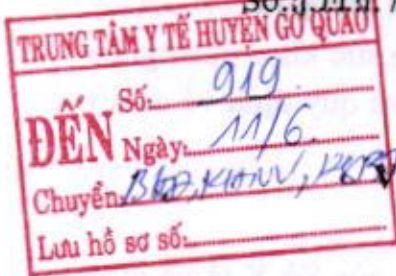 TRUNG TÂM Y TẾ HUYỆN GÒ QUAO
ĐẾN
Số: 919
Ngày: 11/6
Chuyển:
Lưu hồ sơ số: